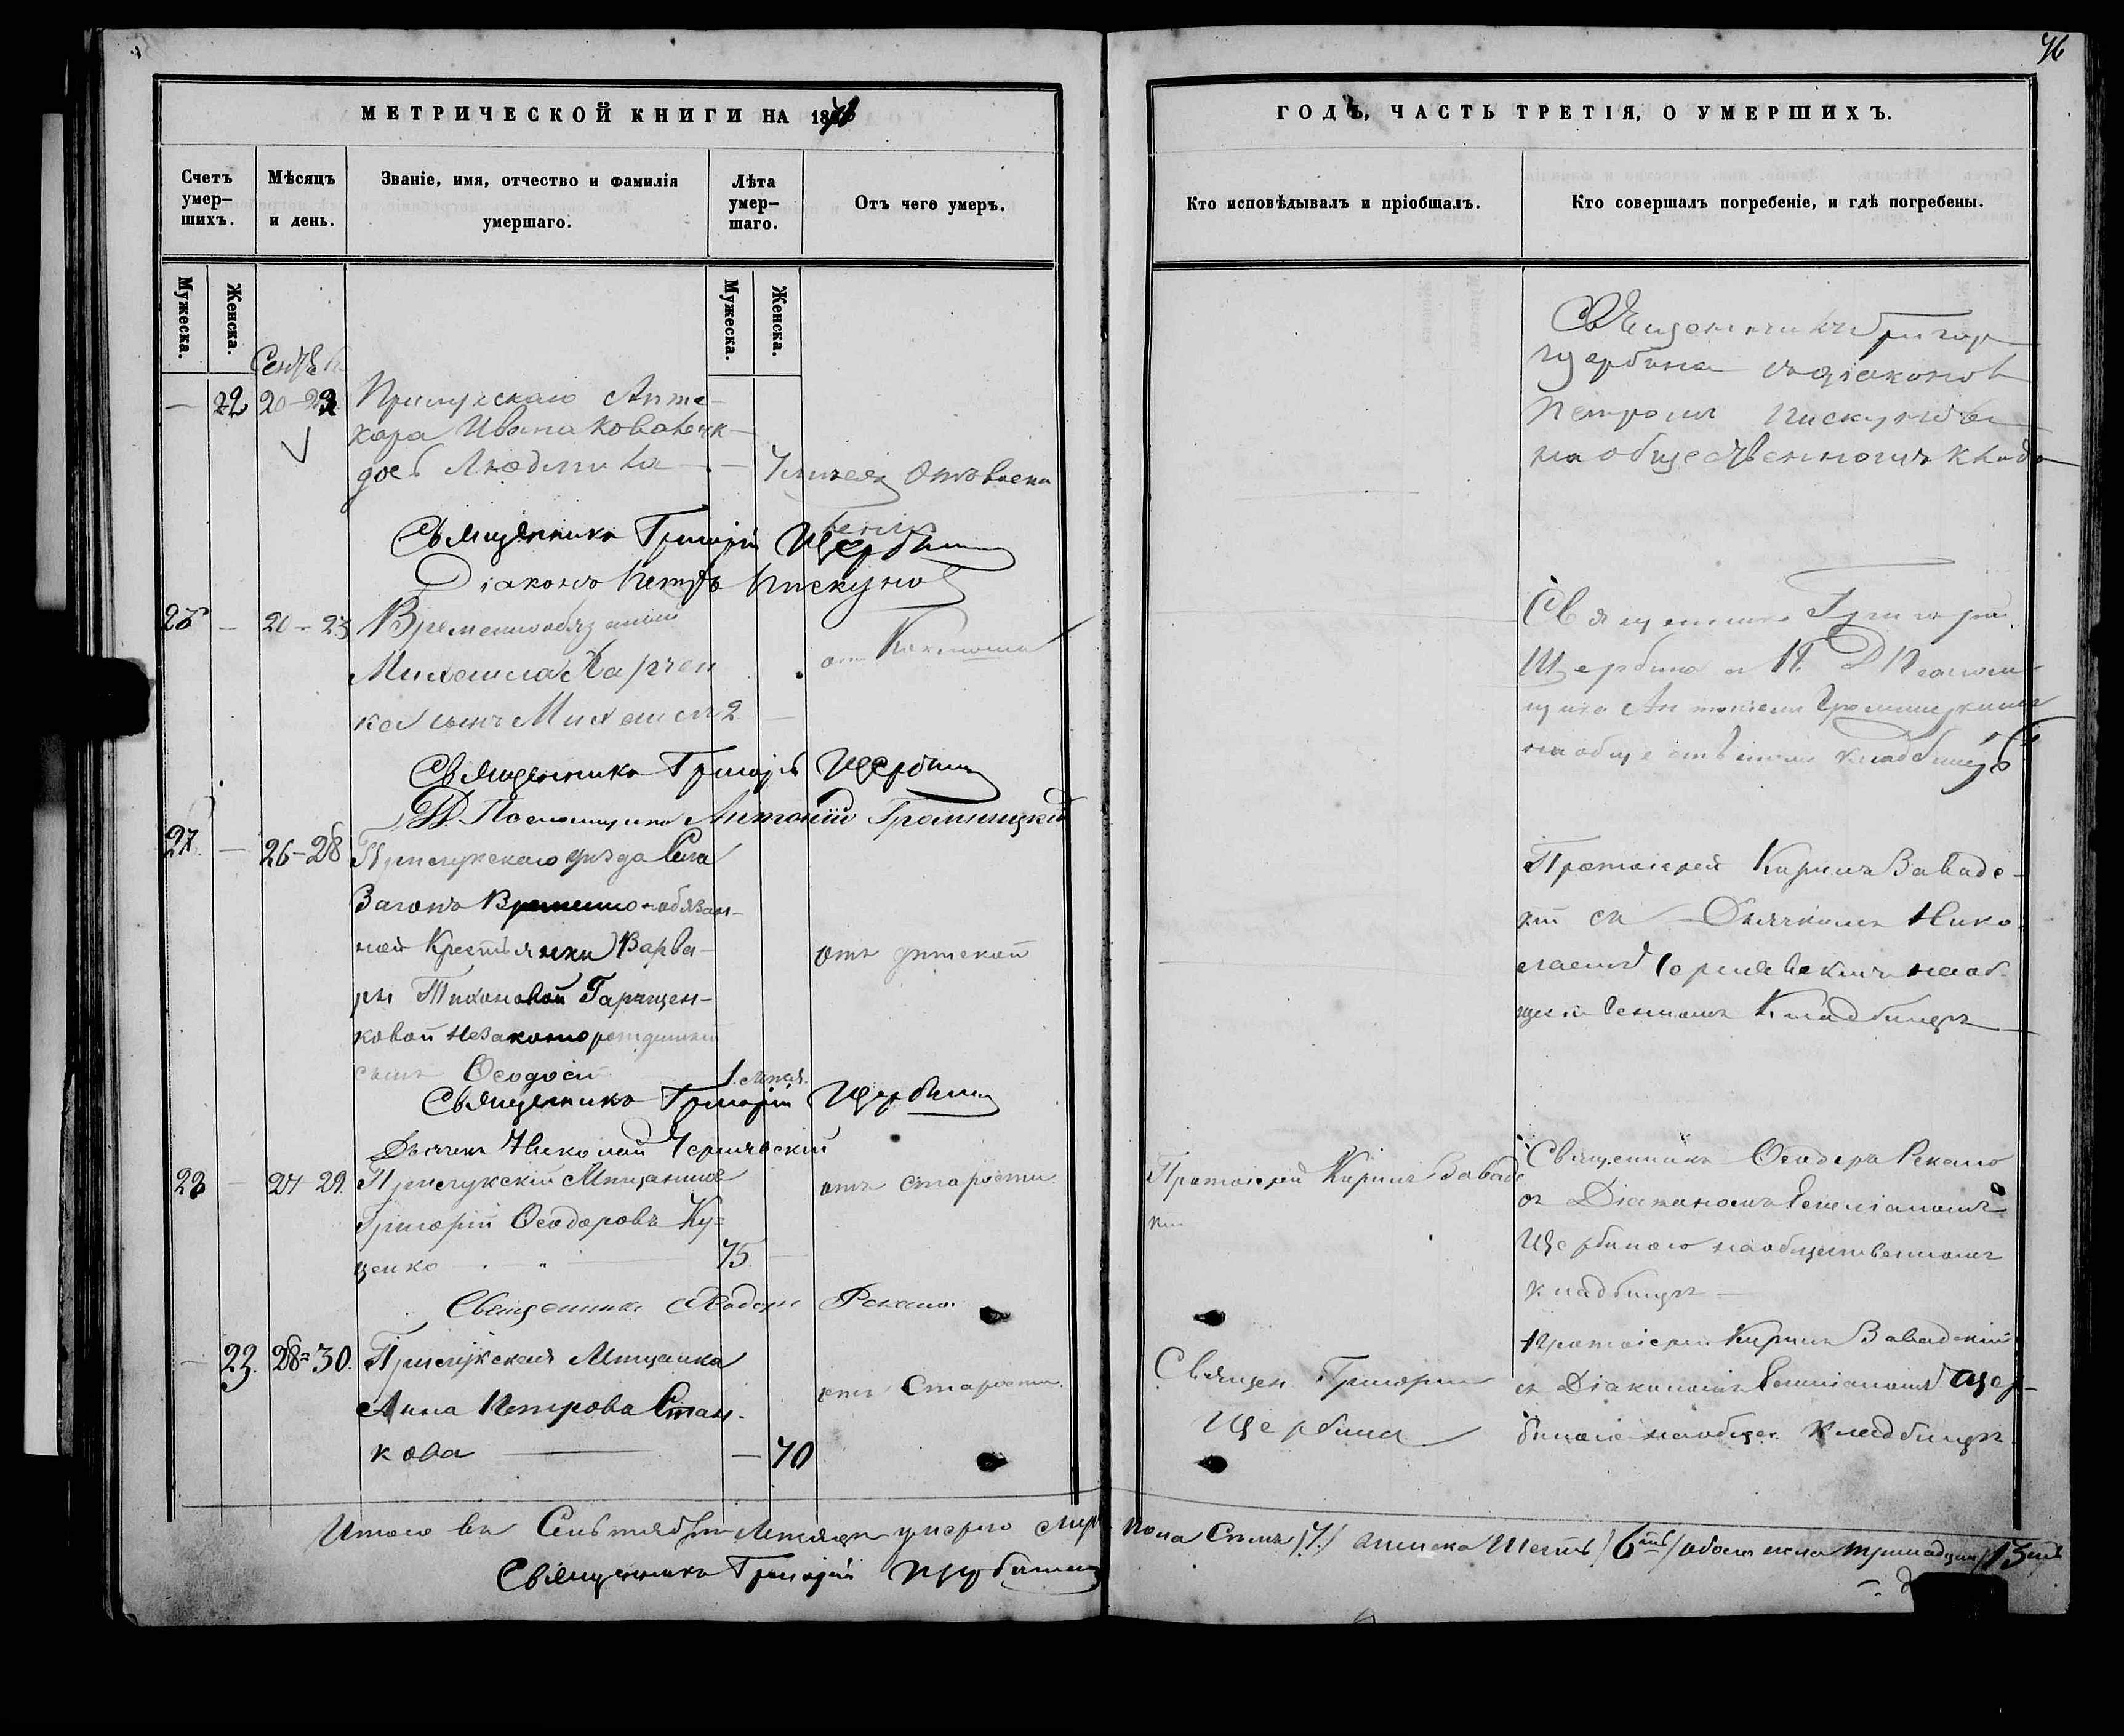 76
МЕТРИЧЕСКОЙ КНИГИ НА 187
ГОДЪ, ЧАСТЬ ТРЕТІЯ, О УМЕРШИХЪ.
Счетъ умер-
шихъ.
Мѣсяцъ
и день.
Званіе, имя, отчество и фамилія
умершаго.
Лѣта
умер-
шаго.
Отъ чего умеръ.
Кто исповѣдывалъ и пріобщалъ.
Кто совершалъ погребеніе, и гдѣ погребены.
Мужеска.
Женска.
Мужеска.
Женска.
— 22 20-22
Прилускаго Апте-
каря Ивана
Людмила —
Священникъ Григор
Щербина съ діаконом
Петромъ Пискуновы
на общественномъ кладб
Священникъ Григорій Щербина
Діаконъ Петръ Пискуновъ
— 20-23 Временнообязанный
Михаила Харчен
ка сынъ Михаилъ 2 —
Священникъ Григорій
Щербина и П. Д Пономи
щика Антоніем Громницкимъ
на общественом кладбищѣ
Священникъ Григорій Щербина
Д. Пономщика Антоній Громницкій
— 26-28 Прилукскаго уѣзда Села
Загонъ Временно-обязан-
ной Крестьянки Варва-
ры Тихоновой Гарищен-
ковой незаконорожденный
сынъ Ѳеодосій 1.
отъ дѣтской
Протоіерей Кирилъ Завадс-
кій съ Дьячкомъ Нико-
лаемъ Чернявскимъ на об-
щественномъ Кладбищѣ —
Священникъ Григорій Щербина
Дьячекъ Николай Чернявскій
— 27-29. Прилукскій Мѣщанинъ
Григорій Ѳеодоровъ Ку-
ценко — 75. —
отъ старости
Протоіерей Кирилъ Завадс
кій
Священникъ Ѳеодоръ Рекало
съ Діакономъ Емиліаномъ
Щербиною на общественномъ
кладбищѣ —
Священникъ Ѳеодоръ Рекало
— 23. 28-30. Прилукская Мѣщанка
Анна Петрова Стан-
кова — — 70
отъ Старости.
Священ. Григорій
Щербина
Протоіерей Кирилъ Завадскій
съ Діакономъ Емиліаномъ Щер-
биною на общес. Кладбищѣ
Итого въ Сентябрѣ Мѣсяцѣ умерло муж. пола Семь /7/ женска Шесть /6ть/ обоего пола тринадцать /13ть
Священникъ Григорій Щербина